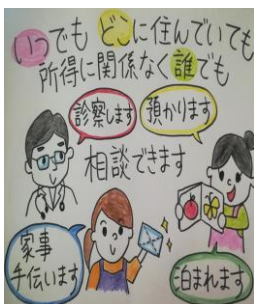 いつでも どこに住んでいても
所得に関係なく誰でも
診察します
預かります
相談できます
家事
手伝います
泊まれます